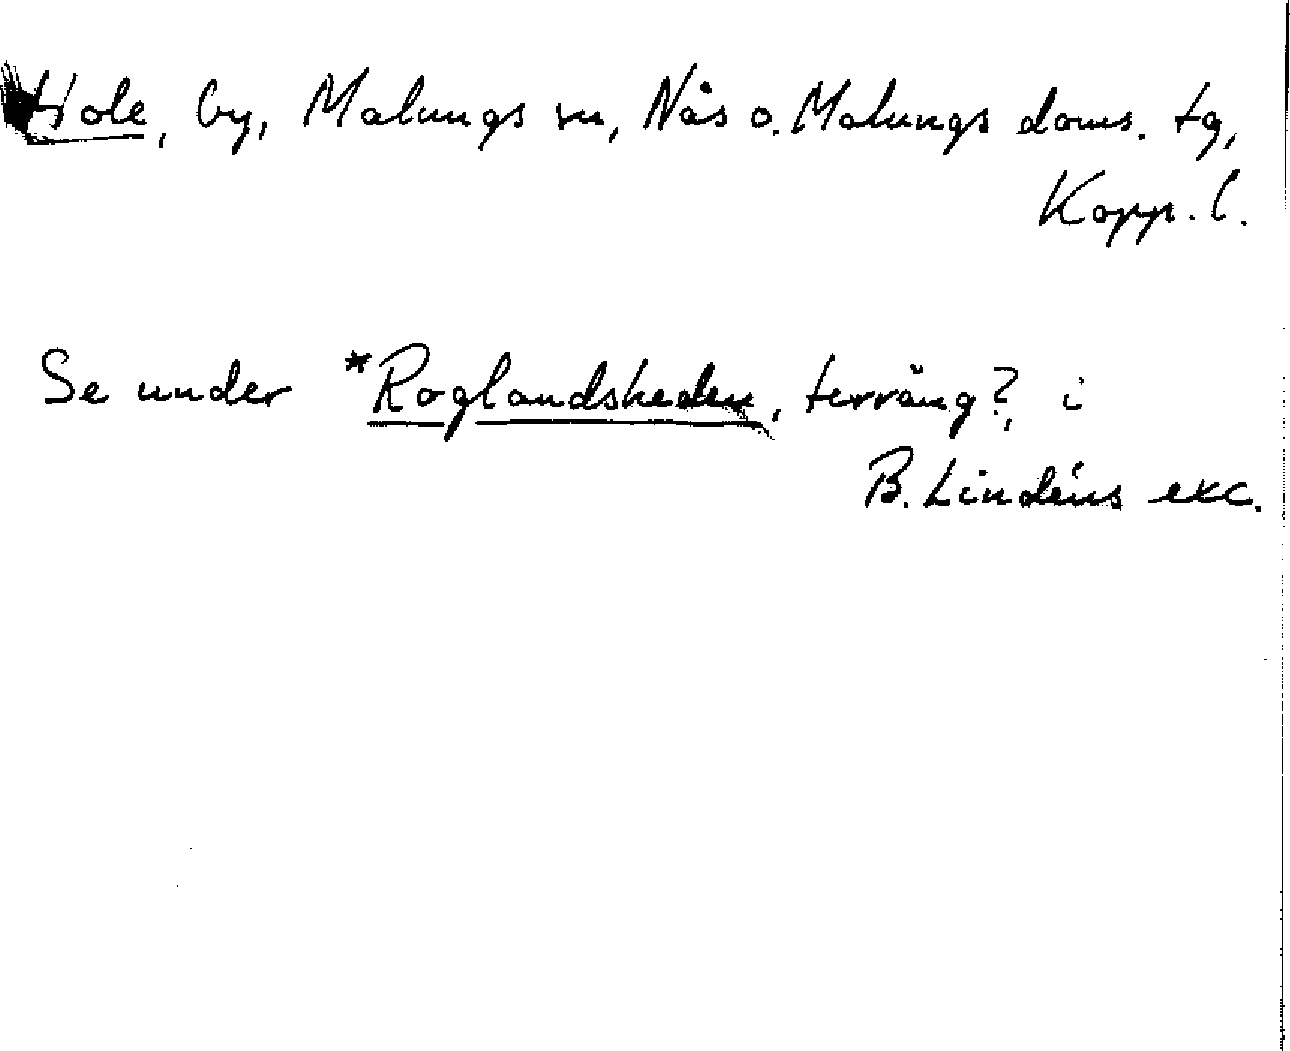 Hole, by, Malungs sn, Nås o. Malungs doms. tg,
Kopp. l.
Se under *Roglandsheden, terräng?, i
B. Lindéns exc.